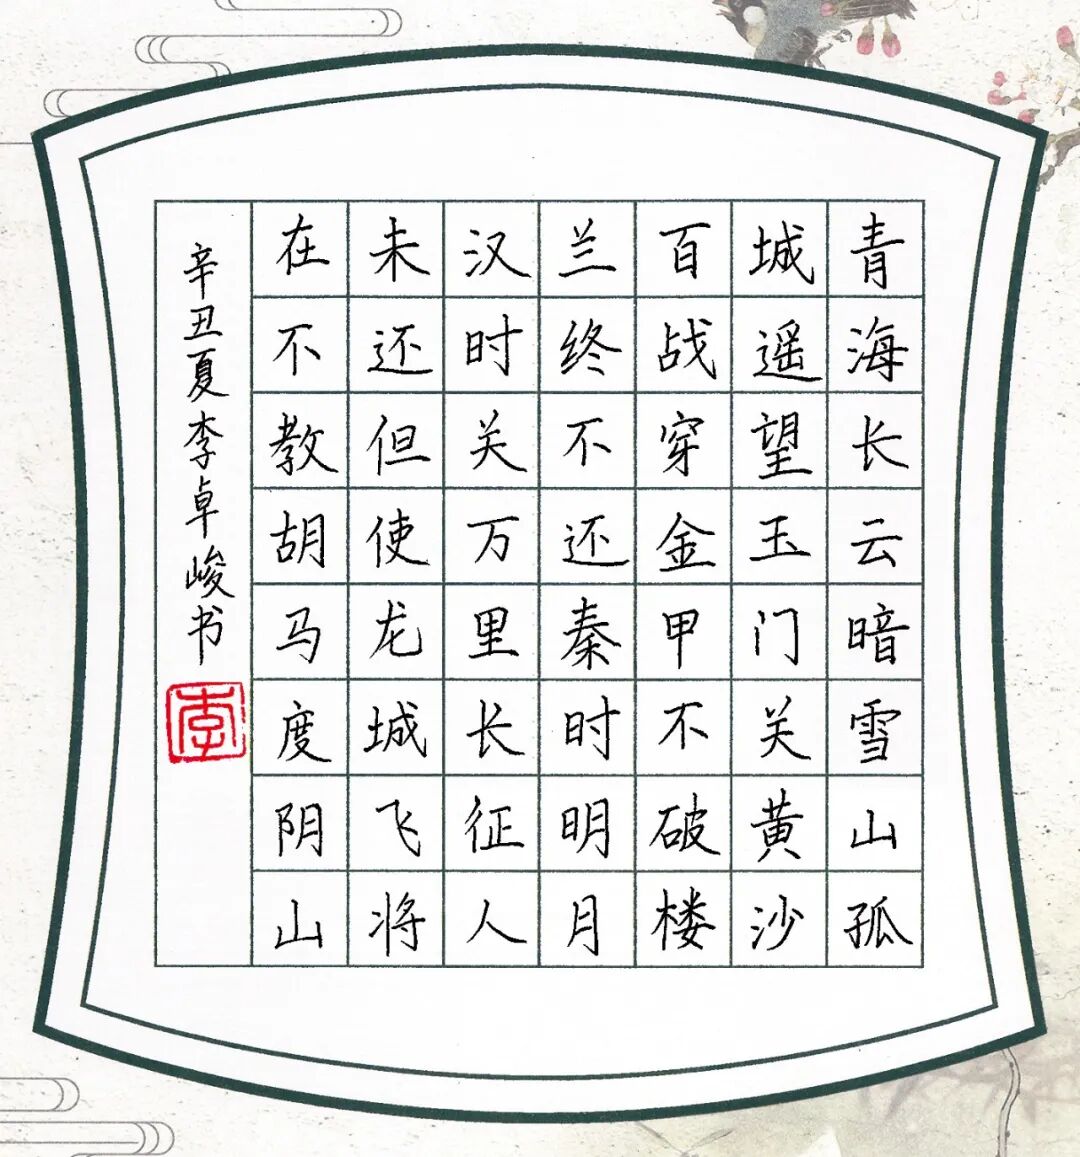 青海长云暗雪山孤
城遥望玉门关黄沙
百战穿金甲不破楼
兰终不还秦时明月
汉时关万里长征人
未还但使龙城飞将
在不教胡马度阴山
辛丑夏李卓峻书
李